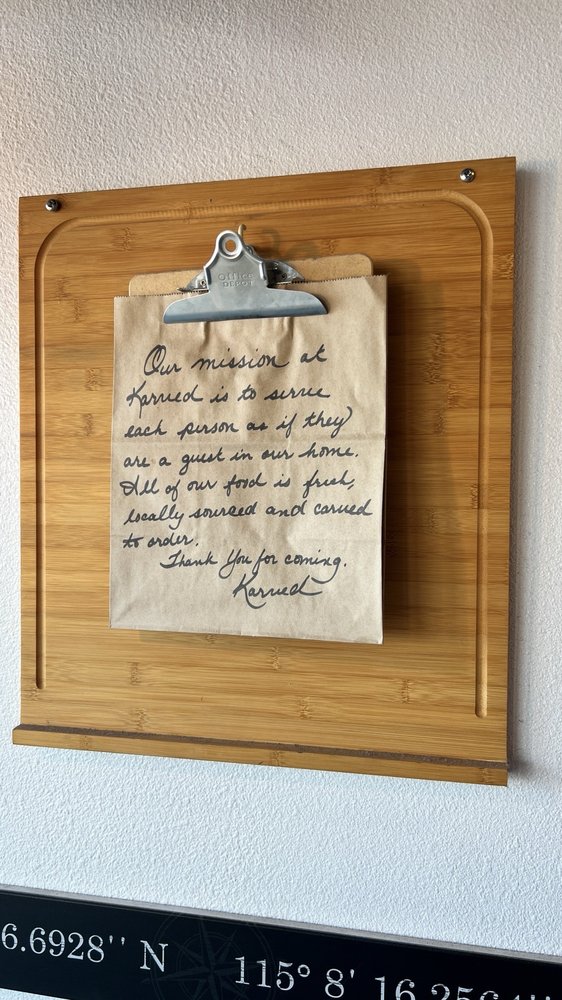 OFFICE
DEPOT
Our mission at
Karved is to serve
each person as if they
are a guest in our home.
All of our food is fresh,
locally sourced and carved
to order.
Thank You for coming.
Karved
6.6928'' N
115° 8' 16.256